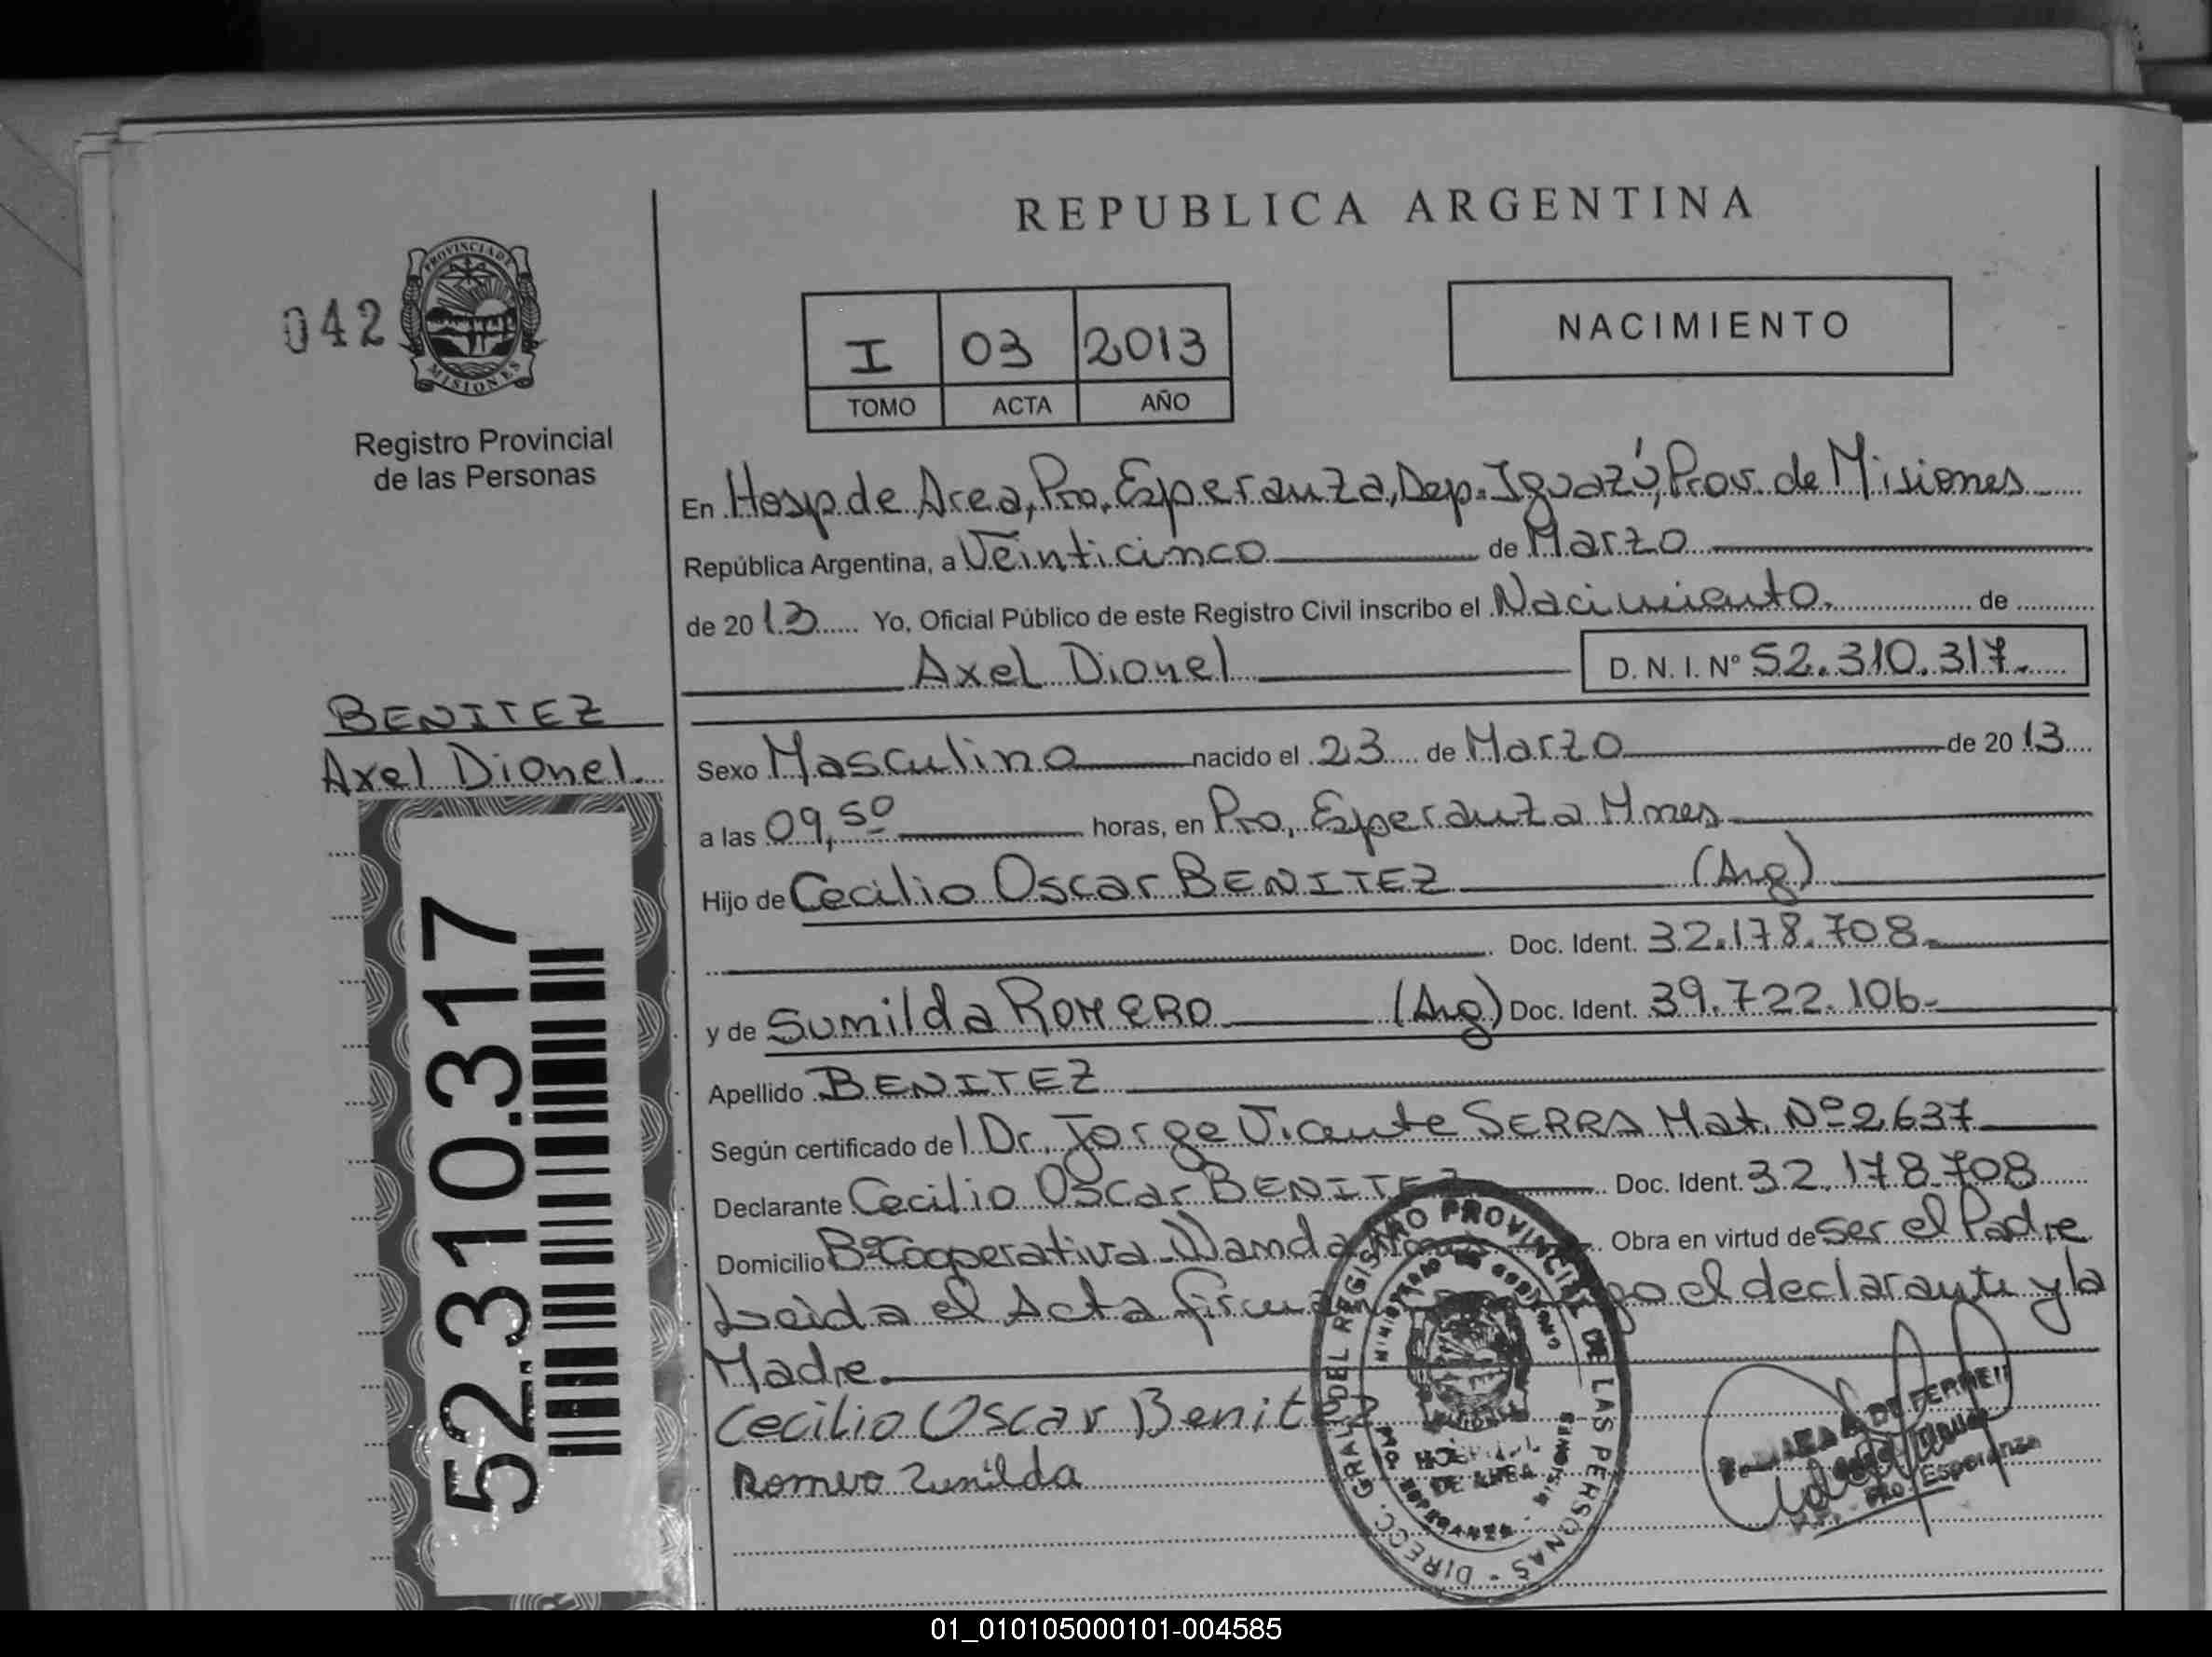 REPUBLICA ARGENTINA
042
PROVINCIA DE
MISIONES
Registro Provincial
de las Personas
I 03 2013
TOMO ACTA AÑO
NACIMIENTO
En Hosp. de Area, Pto. Esperanza, Dep. Iguazú, Prov. de Misiones
República Argentina, a Veinticinco de Marzo
de 2013 Yo, Oficial Público de este Registro Civil inscribo el Nacimiento. de
Axel Dionel D. N. I. Nº 52.310.317.
BENITEZ
Axel Dionel.
52.310.317
Sexo Masculino nacido el 23 de Marzo de 2013
a las 09,50 horas, en Pto. Esperanza Mnes
Hijo de Cecilio Oscar BENITEZ (Arg)
Doc. Ident. 32.178.708.
y de Sunilda ROMERO (Arg) Doc. Ident. 39.722.106-
Apellido BENITEZ
Según certificado del Dr. Jorge Vicente SERRA Mat. Nº 2637
Declarante Cecilio Oscar BENITEZ Doc. Ident. 32.178.708
Domicilio Bº Cooperativa-Wanda Obra en virtud de ser el Padre
Leida el Acta el declarante y la
Madre.
Cecilio Oscar Benitez
Romero Zunilda
DIRECC. GRAL. DEL REGISTRO PROVINCIAL DE LAS PERSONAS
MINISTERIO DE GOBIERNO
HOSPITAL
DE AREA
ESPERANZA - MISIONES
DE FERREI
Pto. Esperanza
01_010105000101-004585